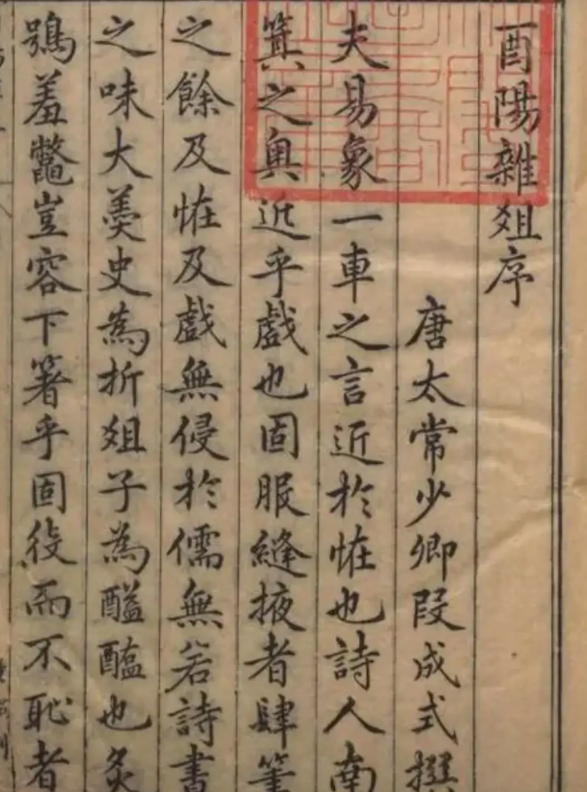 酉陽雜俎序
唐太常少卿段成式撰
夫易象一車之言近於恠也詩人南
箕之奥近乎戲也固服縫掖者肆筆
之餘及恠及戲無侵於儒無若詩書
之味大羹史為折俎子為醯醢也炙
鴞羞鼈豈容下箸乎固役而不恥者